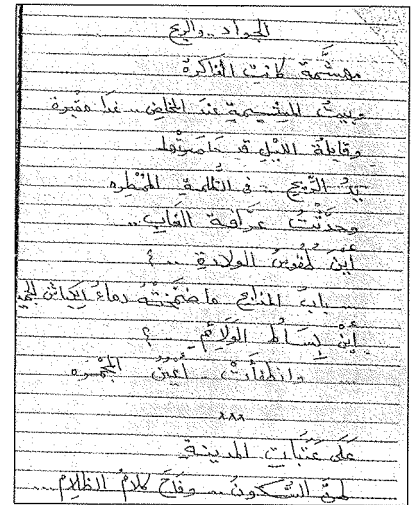 الجواد.. والريح
مهشَّمة كانتِ الذاكرة
وبيتُ المشيمةِ عند المخاض.. غدا مقبرة
وقابلةُ الليلِ قد حاصرتْها
يدُ الريحِ.. في الظلمةِ الممطره
وحدَّثتُ عرّافة الغابِ..
أينَ طُقوسُ الولادةِ ...؟
... بابُ المذابحِ ما ضمَّختْهُ دماءُ الكباشِ
أينَ بِسَاطُ الوَلَائِمِ ..؟
... وانطفأتْ أعينُ المجمره
٨٨٨
على عَتَبَاتِ المدينةِ
السّكونُ... وفاحَ كلامُ الظلامِ....